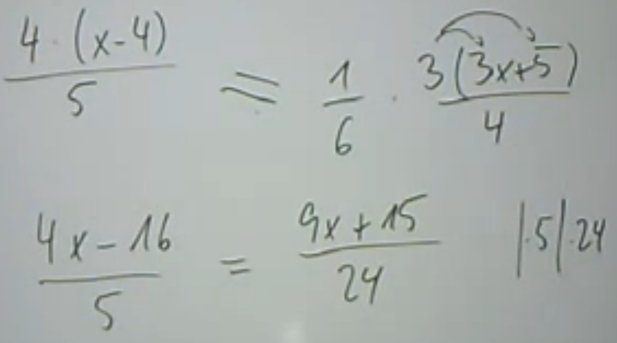 4 · (x-4) / 5 = 1/6 · 3(3x+5) / 4
4x - 16 / 5 = 9x + 15 / 24 |·5|·24